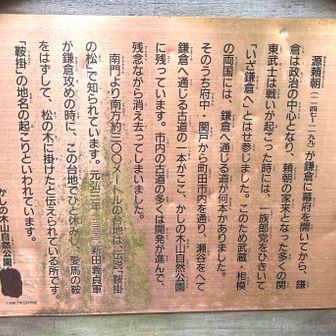 源頼朝(一一四七~一一九九)が鎌倉に幕府を開いてから、鎌
倉は政治の中心となり、頼朝の家来となった多くの関
東武士は戦いが起こった時には、一族郎党をひきいて
「いざ鎌倉へ」とはせ参じました。このため武蔵・相模
の両国には、鎌倉へ通じる道が何本かありました。
そのうち府中・関戸から町田市内を通り、瀬谷をへて
鎌倉へ通じる古道の一本がここ、かしの木山自然公園
に残っています。市内の古道の多くは開発が進んで、
残念ながら消え去ってしまいました。
南門より南方約二〇〇メートルの台地は、伝説「鞍掛
の松」で知られています。元弘三年(一三三三)新田義貞軍
が鎌倉攻めの時に、この台地でひと休みし、愛馬の鞍
をはずして、松の木に掛けたと伝えられている所です。
「鞍掛」の地名の起こりといわれています。
かしの木山自然公園